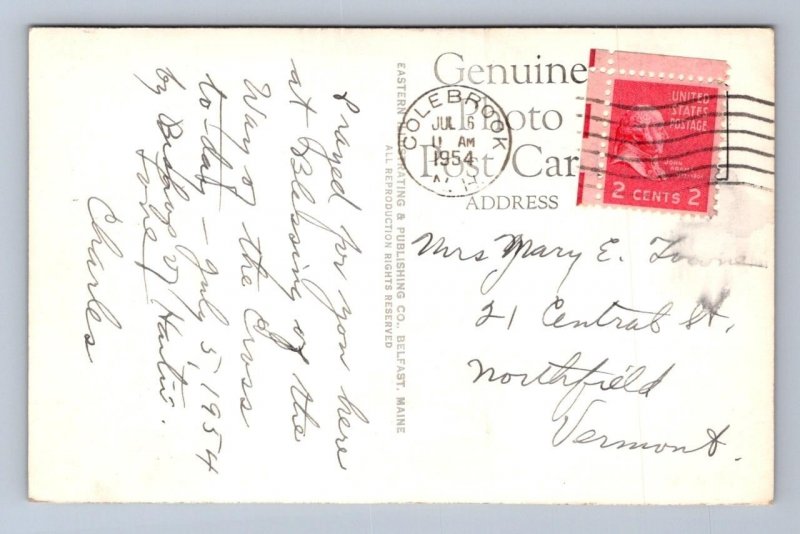 Prayed for you here
at Blessing of the
Way of the Cross
today – July 5, 1954
by Bishop of
Love,
Charles
EASTERN ILLUSTRATING & PUBLISHING CO., BELFAST, MAINE
ALL REPRODUCTION RIGHTS RESERVED
Genuine
Photo
Post Card
ADDRESS
COLEBROOK
JUL 6
11 AM
1954
N.H.
UNITED
STATES
POSTAGE
JOHN
2 CENTS 2
Mrs Mary E. Towne
21 Central St.
Northfield
Vermont.